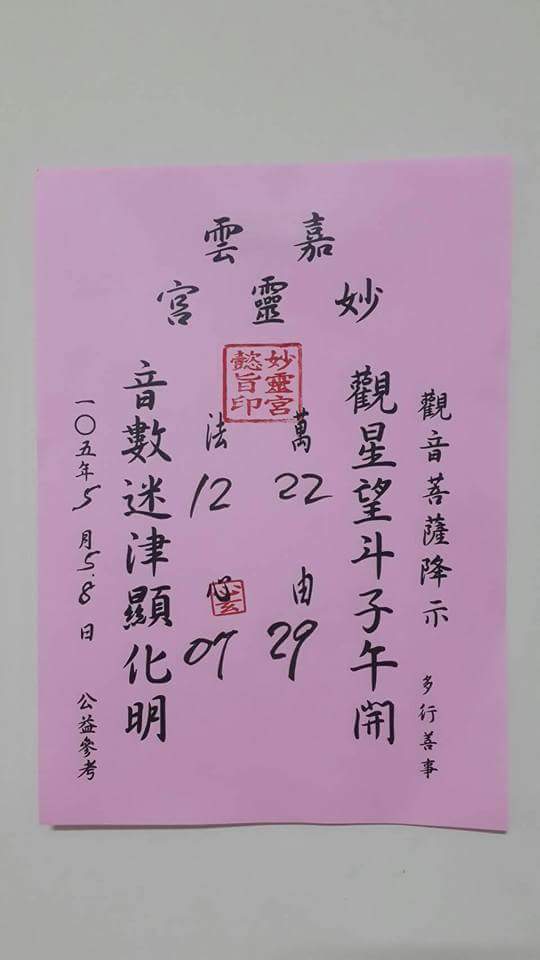 嘉雲
妙靈宮
妙靈宮
懿旨印
觀音菩薩降示 多行善事
觀星望斗子午開
萬 22 由 29
法 12 心 07
音數迷津顯化明
一〇五年5月5.8日 公益參考